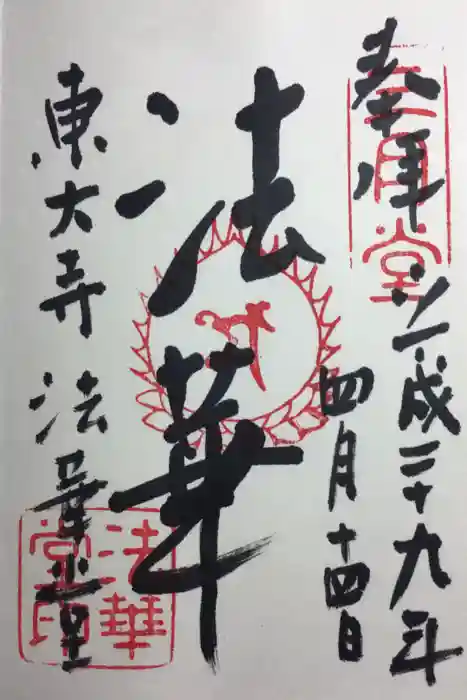 奉拝
平成二十九年
四月十四日
法華
東大寺 法華堂
三月堂
法華堂印